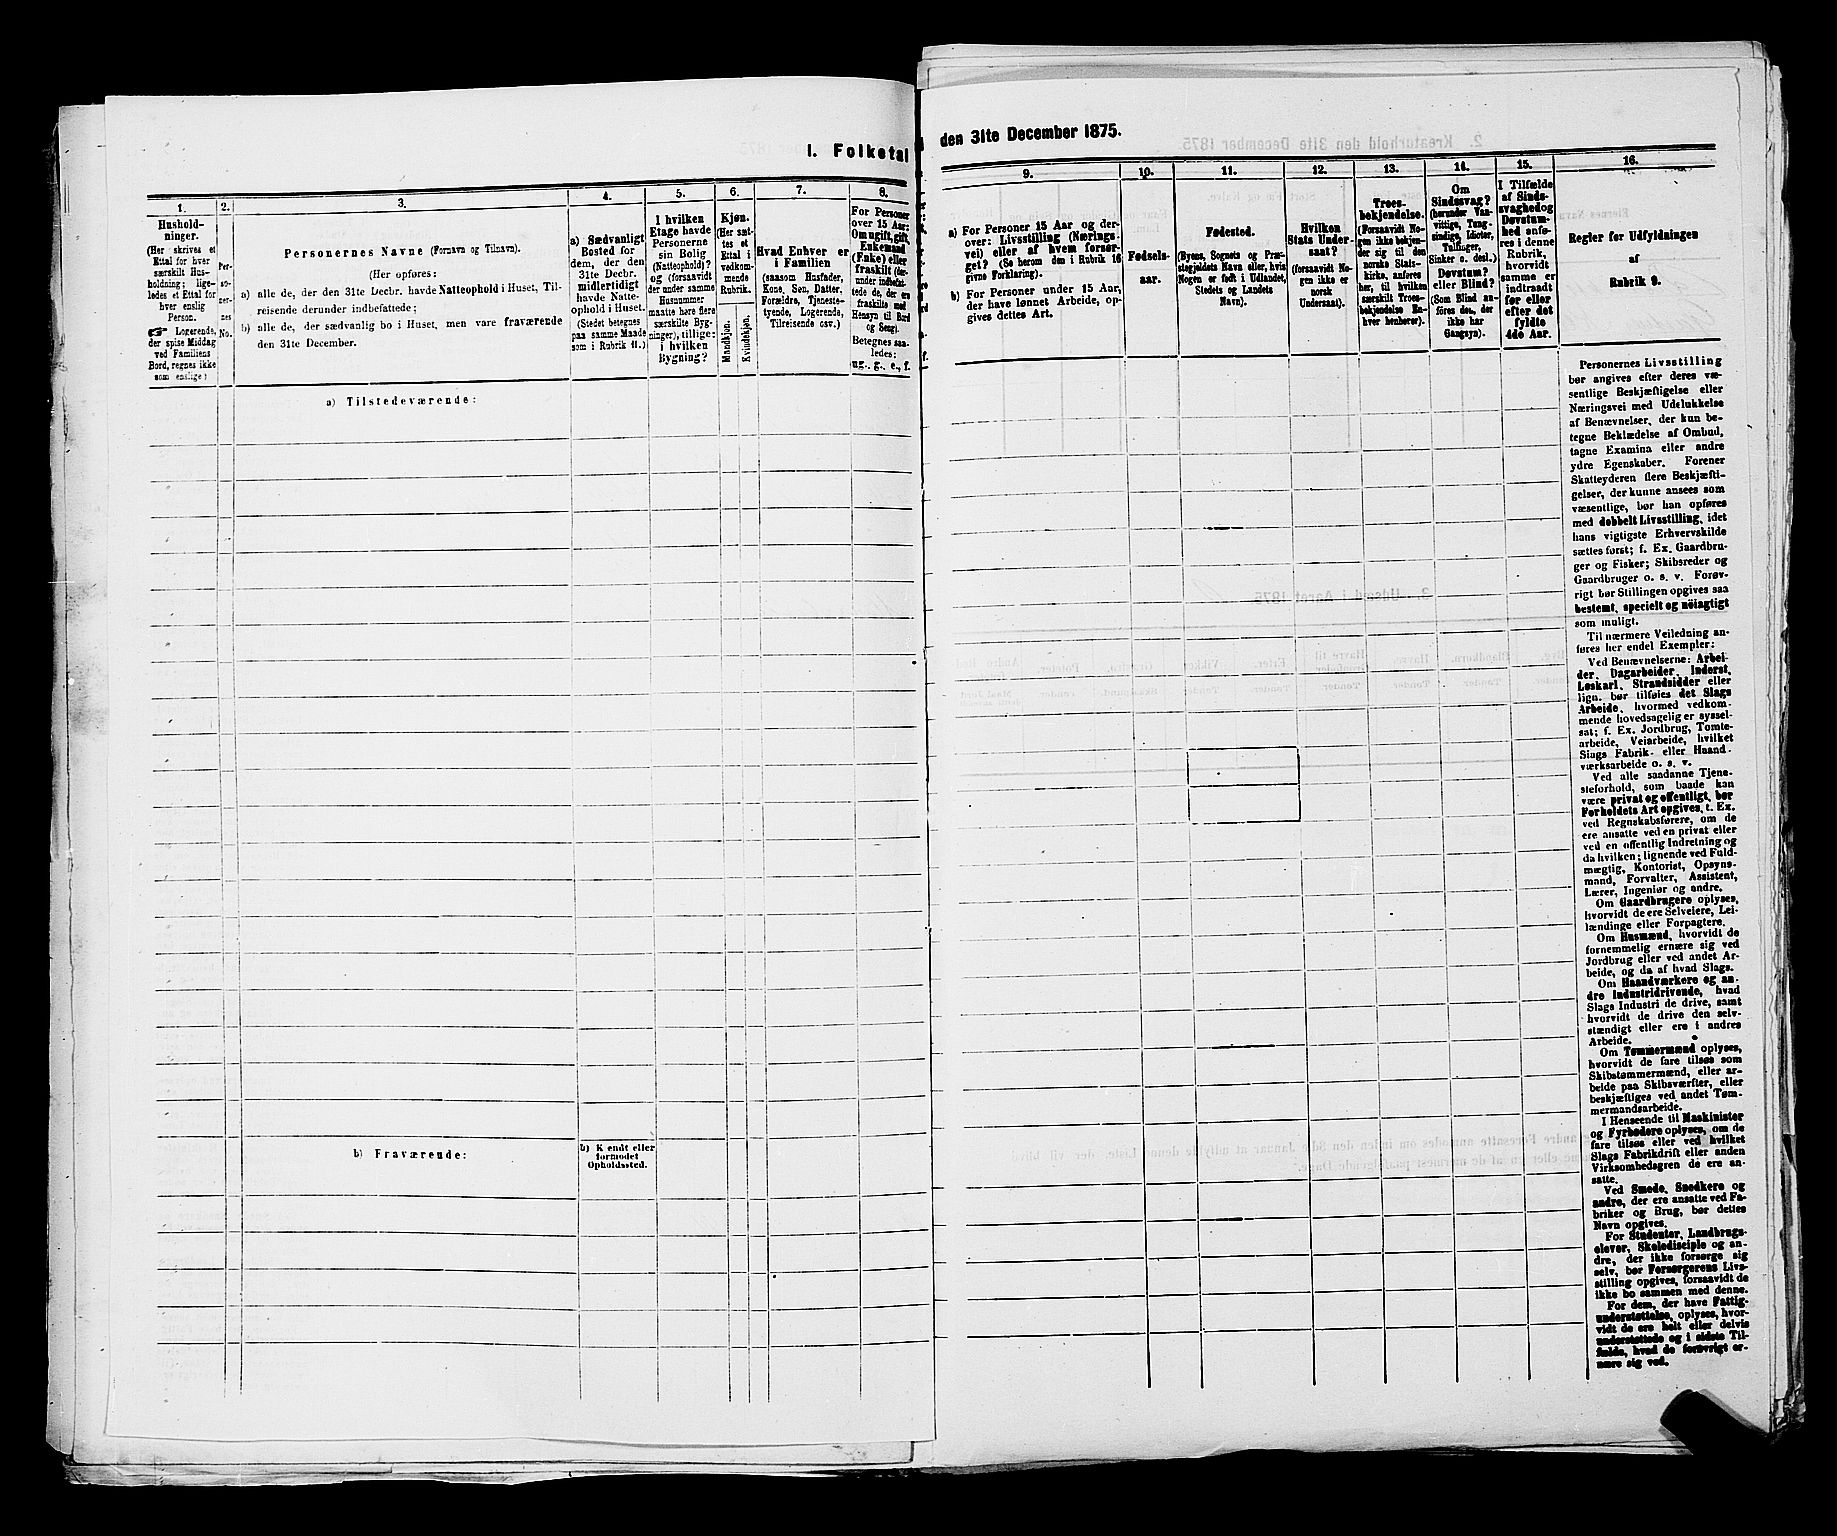 I. Folketal
1.
Hushold-
ninger.
(Her skrives et
Ettal for hver
særskilt Hus-
holdning; lige-
ledes et Ettal for
hver enslig
Person.
☞ Logerende,
der spise Middag
ved Familiens
Bord, regnes ikke
som enslige)
2.
Per-
so-
ner-
nes
No.
3.
Personernes Navne (Fornavn og Tilnavn).
(Her opføres:
a) alle de, der den 31te Decbr. havde Natteophold i Huset, Til-
reisende derunder indbefattede;
b) alle de, der sædvanlig bo i Huset, men vare fraværende
den 31te December.
4.
a) Sædvanligt
Bosted for
dem, der den
31te Decbr.
midlertidigt
havde Natte-
ophold i Huset.
(Stedet betegnes
paa samme Maade
som i Rubrik 11.)
5.
I hvilken
Etage havde
Personerne
sin Bolig
(Natteophold)?
og (forsaavidt
der under samme
Husnummer
maatte høre flere
særskilte Byg-
ninger), tillige:
i hvilken
Bygning?
6.
Kjøn.
(Her sæt-
tes et
Ettal i
vedkom-
mende
Rubrik.
Mandkjøn.
Kvindekjøn.
7.
Hvad Enhver er
i Familien
(saasom Husfader,
Kone, Søn, Datter,
Forældre, Tjeneste-
tyende, Logerende,
Tilreisende osv.)
8.
For Personer
over 15 Aar:
Om ugift, gift,
Enkemand
(Enke) eller
fraskilt (der-
under indbefat-
tede de, der ere
fraskilte med
Hensyn til Bord
og Seng).
Betegnes saa-
ledes:
ug., g., e., f.
a) Tilstedeværende:
b) Fraværende:
b) Kendt eller
formodet
Opholdssted.
den 31te December 1875.
9.
a) For Personer 15 Aar og der-
over: Livsstilling (Nærings-
vei) eller af hvem forsør-
get? (Se herom den i Rubrik 16
givne Forklaring).
b) For Personer under 15 Aar,
der have lønnet Arbeide, op-
gives dettes Art.
10.
Fødsels-
aar.
11.
Fødested.
(Byens, Sognets og Præ-
stegjeldets Navn eller, hvis
Nogen er født i Udlandet,
Stedets og Landets
Navn).
12.
Hvilken
Stats Under-
saat?
(forsaavidt No-
gen ikke er
norsk
Undersaat).
13.
Troes-
bekjendelse.
(Forsaavidt No-
gen ikke bekjen-
der sig til den
norske Stats-
kirke, anføres
her, til hvilken
særskilt Troes-
bekjendelse En-
hver henhører).
14.
Om
Sindssvag?
(herunder Van-
vittige, Tung-
sindige, Idioter,
Tullinger,
Sinker o. desl.)
Døvstum?
eller Blind?
(Som Blind an-
føres den, der
ikke har
Gangsyn).
15.
I Tilfælde
af Sinds-
svaghed og
Døvstum-
hed anfø-
res i denne
Rubrik,
hvorvidt
samme er
indtraadt
før eller
efter det
fyldte
4de Aar.
16.
Regler for Udfyldningen
af
Rubrik 9.
Personernes Livsstilling
bør angives efter deres væ-
sentlige Beskjæftigelse eller
Næringsvei med Udelukkelse
af Benævnelser, der kun be-
tegne Beklædelse af Ombud,
tagne Examina eller andre
ydre Egenskaber. Forener
Skatteyderen flere Beskjæfti-
gelser, der kunne ansees som
væsentlige, bør han opføres
med dobbelt Livsstilling, idet
hans vigtigste Erhvervskilde
sættes først; f. Ex. Gaardbru-
ger og Fisker; Skibsreder og
Gaardbruger o. s. v. Forøv-
rigt bør Stillingen opgives saa
bestemt, specielt og nöiagtigt
som muligt.
Til nærmere Veiledning an-
føres her endel Exempler:
Ved Benævnelserne: Arbei-
der, Dagarbeider, Inderst,
Løskarl, Strandsidder eller
lign. bør tilføies det Slags
Arbeide, hvormed vedkom-
mende hovedsagelig er syssel-
sat; f. Ex. Jordbrug, Tomte-
arbeide, Veiarbeide, hvilket
Slags Fabrik- eller Haand-
værksarbeide o. s. v.
Ved alle saadanne Tjene-
steforhold, som baade kan
være privat og offentligt, bør
Forholdets Art opgives, t. Ex.
ved Regnskabsførere, om de
ere ansatte ved en privat eller
ved en offentlig Indretning og
da hvilken; lignende ved Fuld-
mægtig, Kontorist, Opsyns-
mand, Forvalter, Assistent,
Lærer, Ingeniør og andre.
Om Gaardbrugere oplyses,
hvorvidt de ere Selveiere, Lei-
lændinge eller Forpagtere.
Om Husmænd, hvorvidt de
fornemmelig ernære sig ved
Jordbrug eller ved andet Ar-
beide, og da af hvad Slags.
Om Haandværkere og an-
dre Industridrivende, hvad
Slags Industri de drive, samt
hvorvidt de drive den selv-
stændigt eller ere i andres
Arbeide.
Om Tømmermænd oplyses,
hvorvidt de fare tilsøs som
Skibstømmermænd, eller ar-
beide paa Skibsværfter, eller
beskjæftiges ved andet Tøm-
mermandsarbeide.
I Henseende til Maskinister
og Fyrbødere oplyses, om de
fare tilsøs eller ved hvilket
Slags Fabrikdrift eller anden
Virksomhedsgren de ere an-
satte.
Ved Smede, Snedkere og
andre, der ere ansatte ved Fa-
briker og Brug, bør dettes
Navn opgives.
For Studenter, Landbrugs-
elever, Skoledisciple og an-
dre, der ikke forsørge sig
selv, bør Forsørgerens Livs-
stilling opgives, forsaavidt de
ikke bo sammen med denne.
For dem, der have Fattig-
understøttelse, oplyses, hvor-
vidt de ere helt eller delvis
understøttede og i sidste Til-
fælde, hvad de forøvrigt er-
nære sig ved.